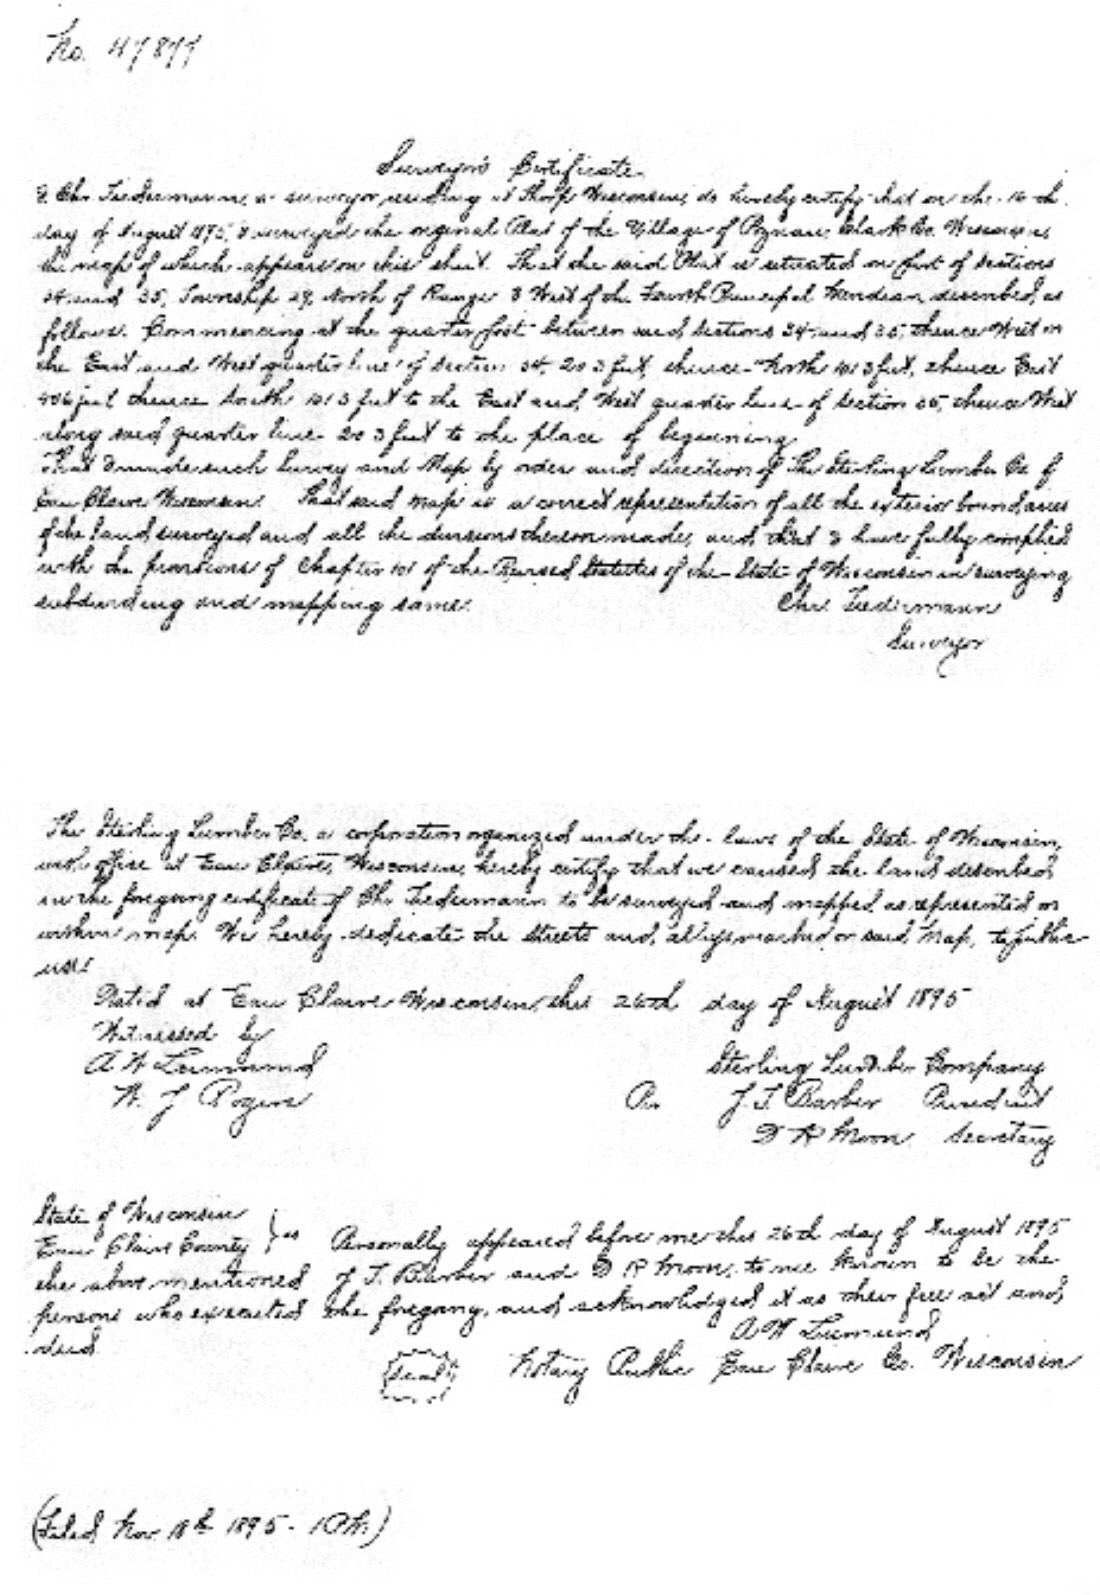 No. 47877
Surveyor's Certificate
I Chr. Tiedermann, a surveyor residing at Thorp Wisconsin, do hereby certify that on the 16th
day of August 1895, I surveyed the orginal Plat of the Village of Poznan, Clark Co. Wisconsin,
the map of which appears on this sheet. That the said Plat is situated on part of Sections
34 and 35, Township 29, North of Range 3 West of the Fourth Principal Meridian, described, as
follows. Commencing at the quarter post between said Sections 34 and 35, thence West on
the East and West quarter line of Section 34, 203 feet, thence North 1013 feet, thence East
406 feet thence South 1013 feet to the East and West quarter line of Section 35, thence West
along said quarter line 203 feet to the place of beginning
That I made such Survey and Map by order and direction of The Sterling Lumber Co. of
Eau Claire Wisconsin. That said map is a correct representation of all the exterior boundaries
of the land surveyed and all the divisions thereon made, and that I have fully complied
with the provisions of Chapter 101 of the Revised Statutes of the State of Wisconsin in surveying
subdividing and mapping same.
Chr. Tiedermann
Surveyor
The Sterling Lumber Co. a corporation organized under the laws of the State of Wisconsin,
with office at Eau Claire, Wisconsin, hereby certify that we caused the land described
in the foregoing certificate of Chr. Tiedermann to be surveyed and mapped as represented on
within map. We hereby dedicate the streets and alleys marked on said Map, to public
use.
Dated at Eau Claire Wisconsin, this 26th day of August 1895
Witnessed by
A W
W. J Rogers
Sterling Lumber Company
J. T. Barber President
D R Moon Secretary
State of Wisconsin
Eau Claire County } ss Personally appeared before me this 26th day of August 1895
the above mentioned J. T. Barber and D R Moon, to me known to be the
persons who executed the foregoing, and acknowledged it as their free act and
deed
A W
(Seal) Notary Public Eau Claire Co. Wisconsin
(Filed Nov. 18th 1895 - 1 P.M.)